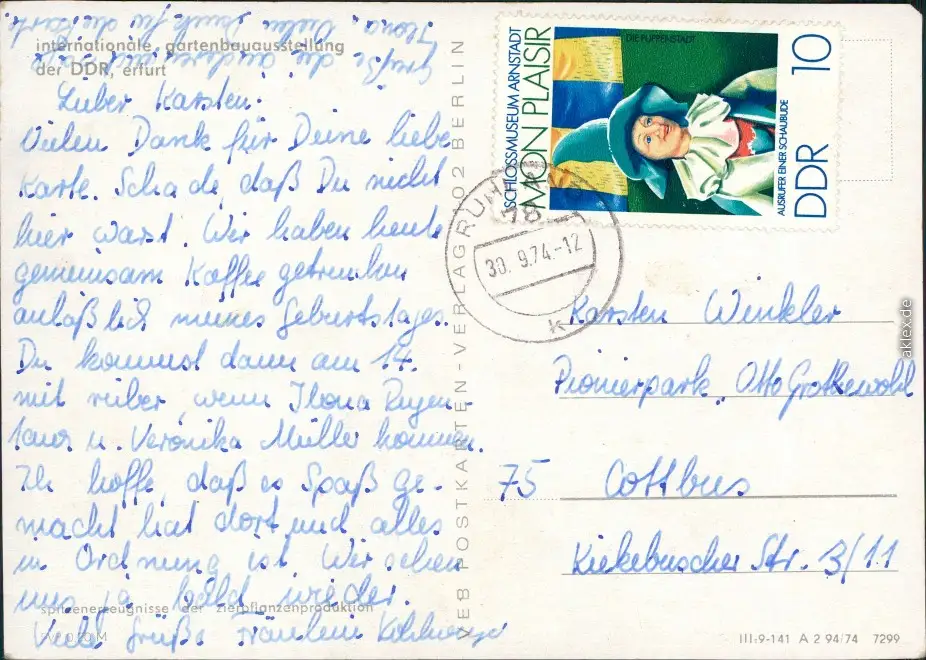 internationale gartenbauausstellung
der DDR, erfurt
Lieber Karsten.
Vielen Dank für Deine liebe
Karte. Schade, daß Du nicht
hier warst. Wir haben heute
gemeinsam Kaffee getrunken
anläßlich meines Geburtstages.
Du kommst dann am 14.
mit rüber, wenn Ilona
u. Veronika Müller kommen.
Ich hoffe, daß es Spaß ge-
macht hat dort und alles
in Ordnung ist. Wir sehen
uns ja bald wieder.
Viele Grüße Fräulein
Grüße die anderen
Ilona, vielen Dank für die Karte
spitzenerzeugnisse der zierpflanzenproduktion
0,20 M
VEB POSTKARTEN-VERLAG 102 BERLIN
SCHLOSSMUSEUM ARNSTADT
MON PLAISIR
DIE PUPPENSTADT
AUSRUFER EINER SCHAUBUDE
DDR 10
RUH
78
30.9.74-12
k
Karsten Winkler
Pionierpark „Otto Grotewohl
75 Cottbus
Kiekebuscher Str. 3/11
III-9-141 A 2 94/74 7299
aklex.de